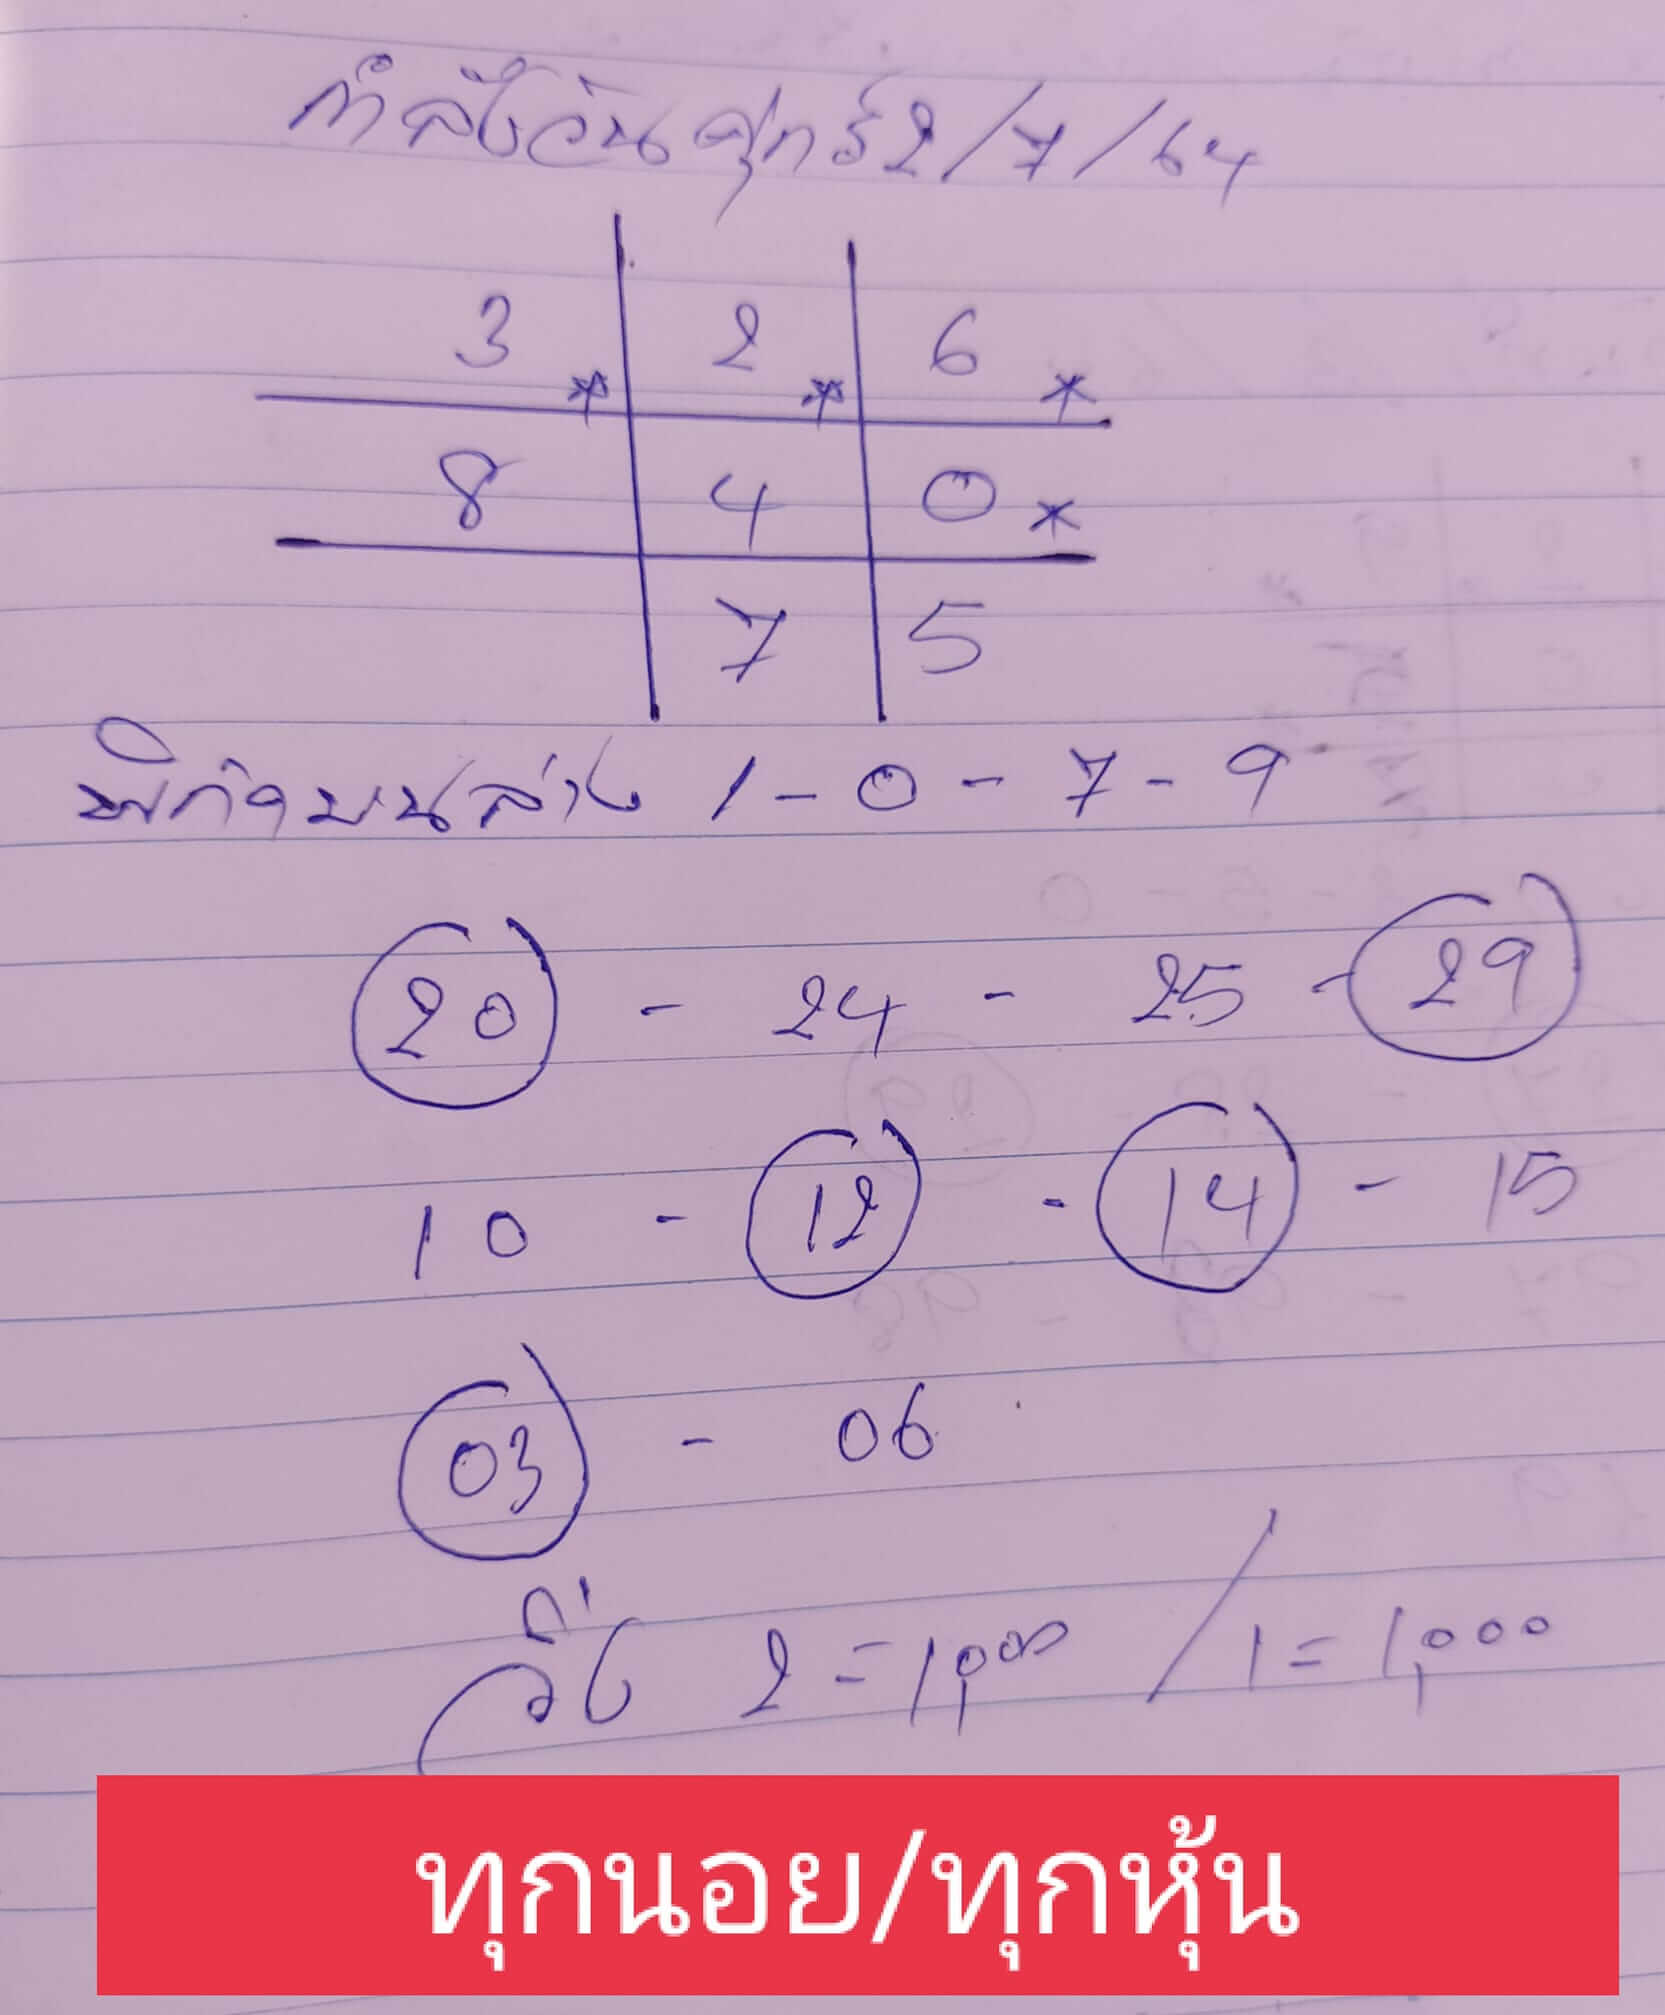 กำลังวันศุกร์ 2/7/64
3 * 2 * 6 *
8 4 0 *
7 5
พิกัดบนล่าง 1 - 0 - 7 - 9
20 - 24 - 25 - 29
10 - 12 - 14 - 15
03 - 06
วิ่ง 2 = 1,000 / 1 = 1,000
ทุกนอย/ทุกหุ้น